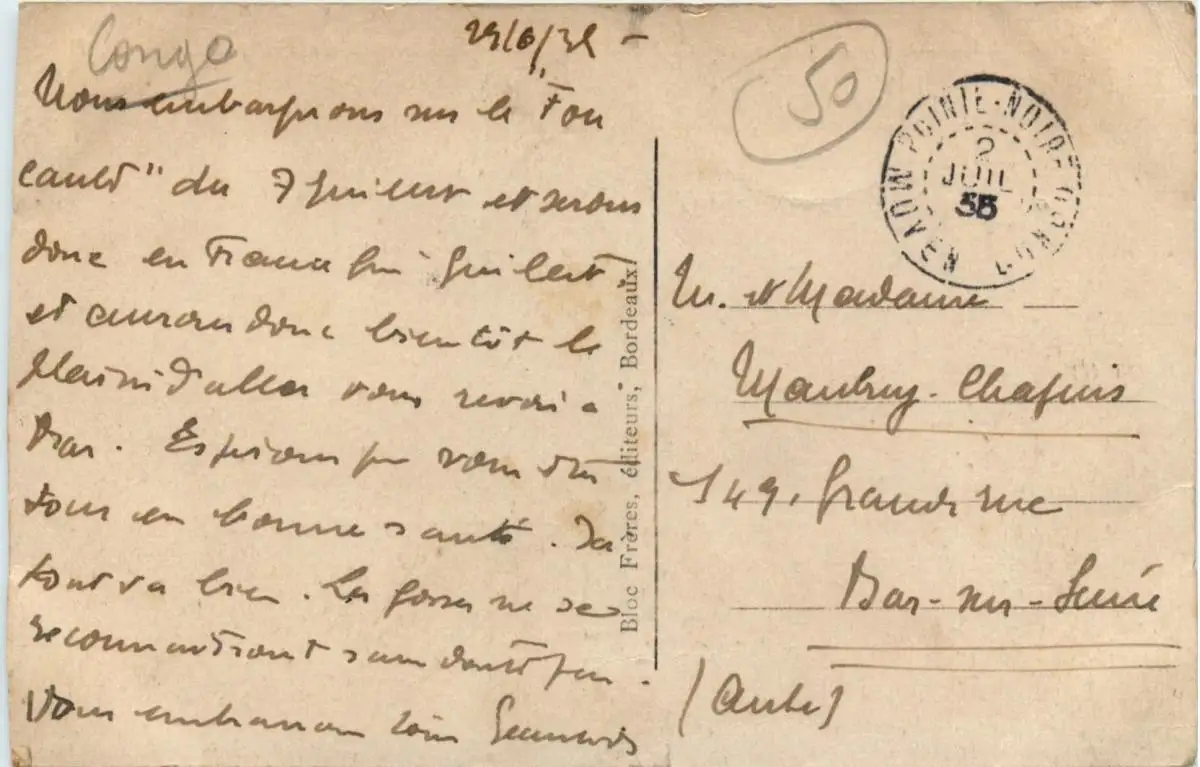 Congo
50
29/6/35 –
Nous embarquons sur le "Fou
cauld" du 7 Juillet et serons
donc en France fin Juillet,
et aurons donc bientôt le
plaisir d'aller vous revoir a
Bar. Espérons que vous êtes
tous en bonne santé. Ici
tout va bien. Les gosses ne se
reconnaitront sans doute pas.
Vous embrassons tous
POINTE-NOIRE CONGO
2
JUIL
35
MOYEN
M. et Madame
Maubrey-Chapuis
149, Grande rue
Bar-sur-Seine
(Aube)
Bloc Frères, éditeurs, Bordeaux